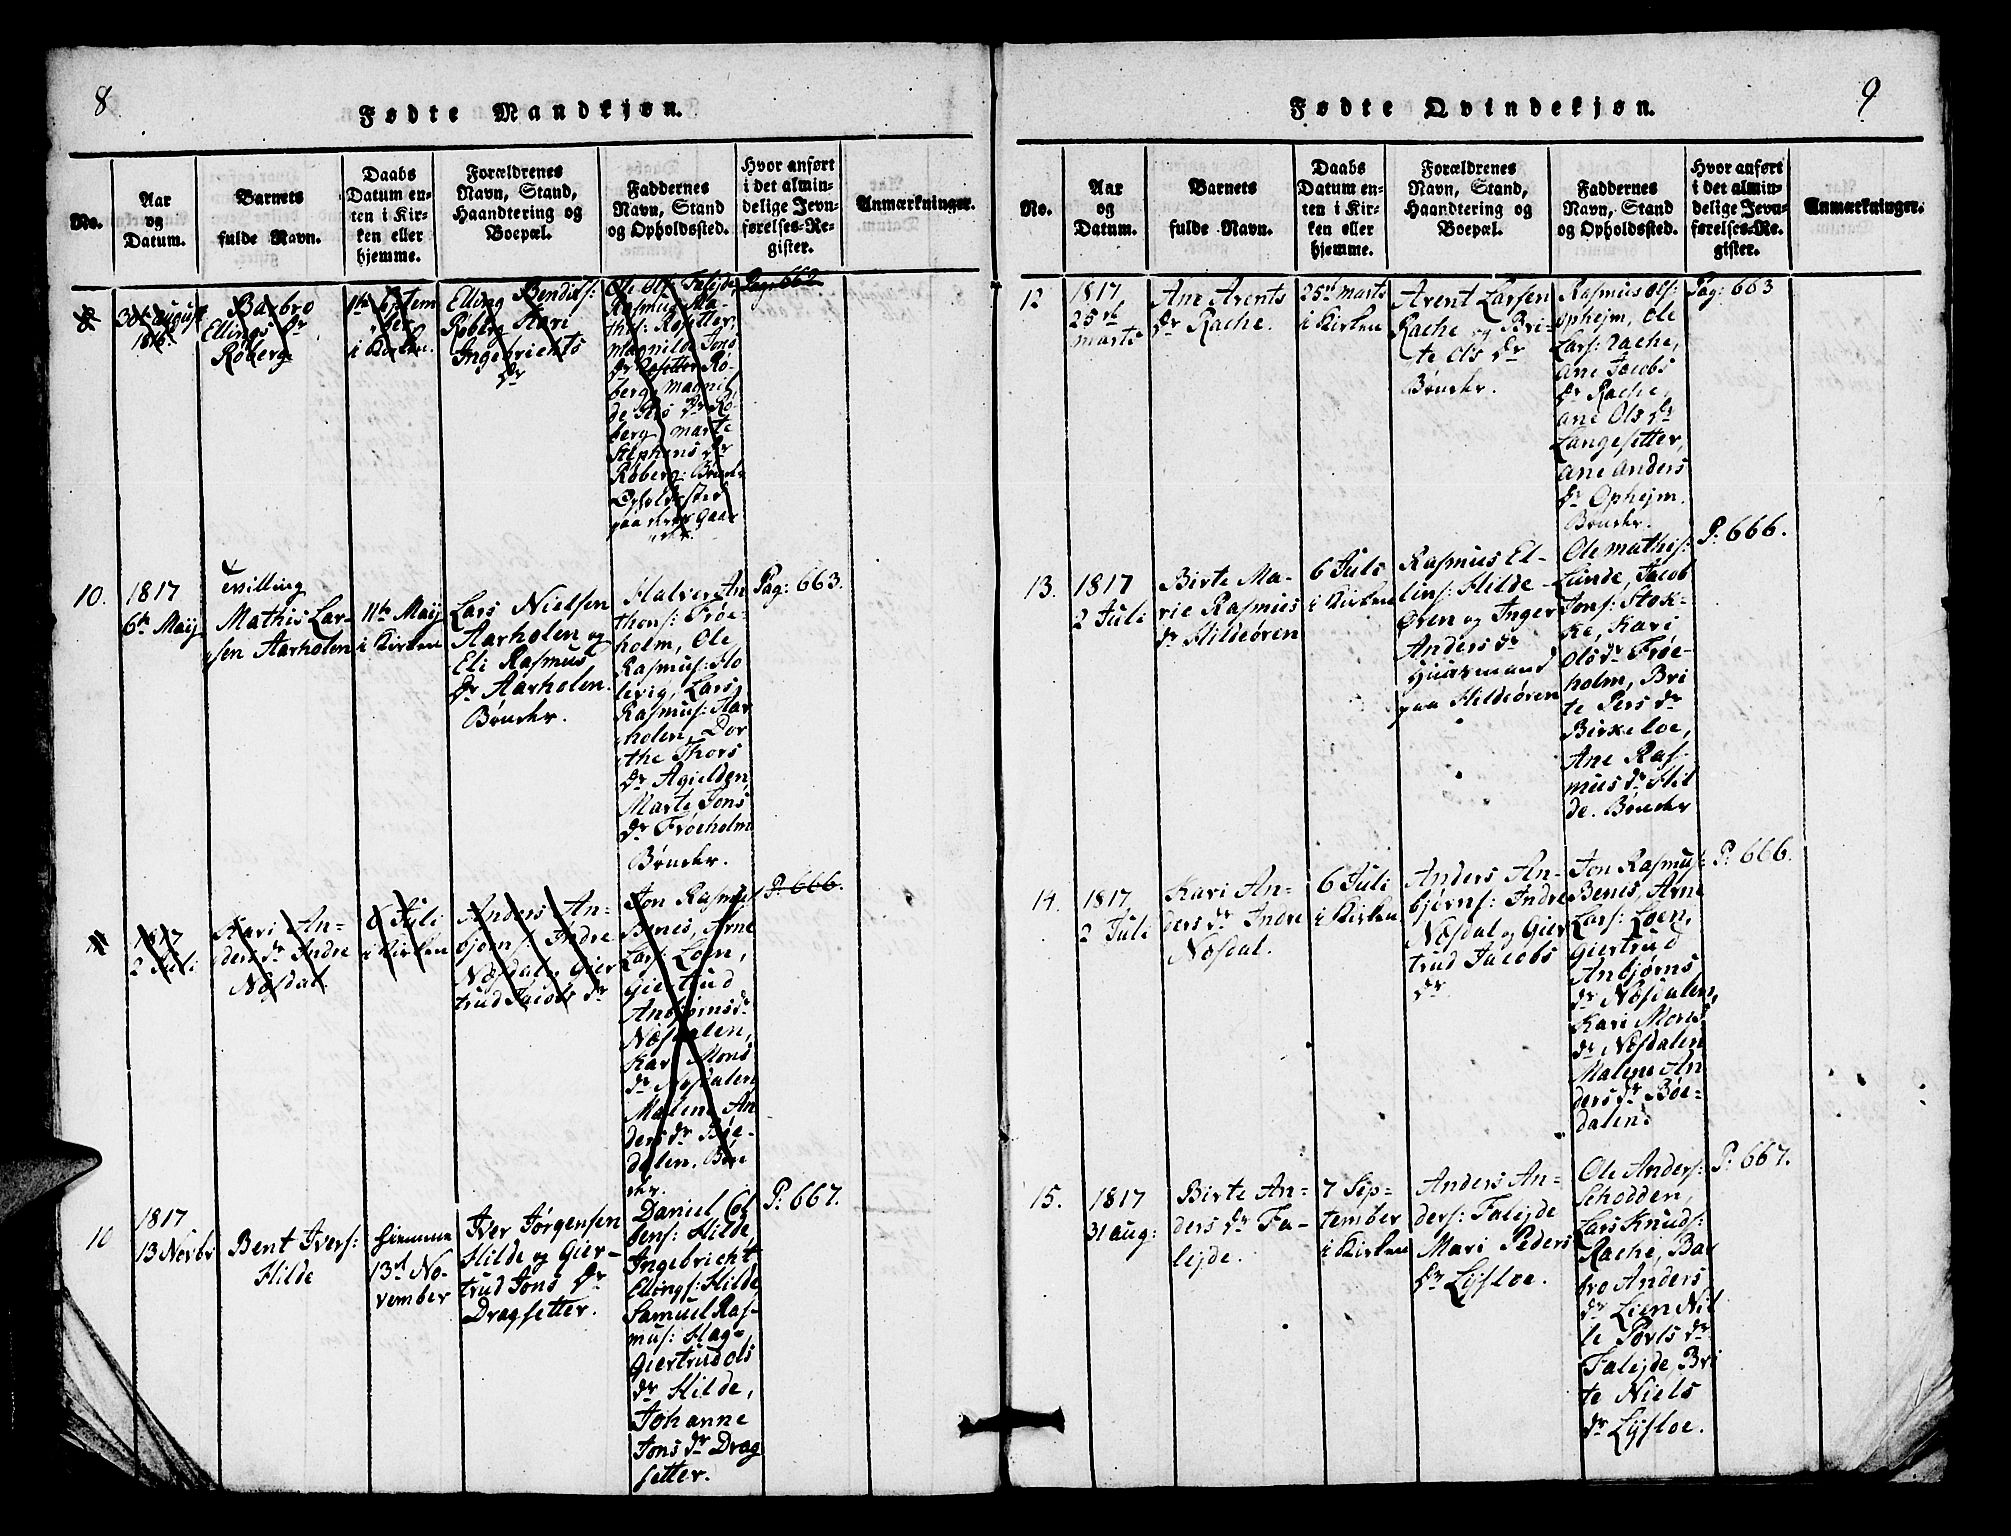 8
Fødte Mandkjøn.
No.
Aar
og
Datum.
Barnets
fulde Navn.
Daabs
Datum en-
ten i Kir-
ken eller
hjemme.
Forældrenes
Navn, Stand,
Haandtering og
Boepæl.
Faddernes
Navn, Stand
og Opholdssted.
Hvor anført
i det almin-
delige Jevn-
førelses-Re-
gister.
Anmærkninger.
8
30te august
1816.
Barbro
Ellings Dr
Røberg
1te Septem
ber
i Kirken.
Elling Bendixs:
Røberg Kari
Ingebrichts
Dr
Ole Ols: Falejde
Rasmus Ma-
this: Røsetter,
magnilde Jons
Dr Røsetter Rø-
berg, magnil
de Dr Rø-
berg, marte
Stephens Dr
Røberg. Bønder
paa Gaar
Pag: 662
10.
1817
6te Maij
Tvilling
Mathis Lar-
sen Aarholen
11te Maij
i Kirken
Lars Nielsen
Aarholen og
Eli Rasmus
Dr Aarholen.
Bønder.
Halver An
thons: Frøe-
holm, Ole
Rasmus: Ho
levig, Lars
Rasmus: Aar
holen, Dor
the Thors
Dr Agielden,
Marte Jons
Dr Frøeholm
Bønder.
Pag: 663.
11
1817
2 Juli
Kari An-
ders Dr Indre
Næsdal.
6 Juli
i Kirken
Anders An-
bjørns: Indre
Næsdal, Gier
trud Jacobs Dr
Jon Rasmus:
Benes, Arne
Lars: Loen,
Giertrud
Anbjørns Dr
Næsdalen,
Kari Mons
Dr Næsdalen
Malene An
ders Dr Bøe-
dalen. Bøn
der.
P: 666.
10
1817
13 Novbr
Bent Ivers:
Hilde
hiemme
13de No-
vember
Iver Jørgensen
Hilde og Gier-
trud Jons Dr
Dragsetter.
Daniel Col
bens: Hilde,
Ingebricht
Ellings: Hilde,
Samuel Ras-
mus: Hage
Giertrud Ols
Dr Hilde,
Johanne
Jons Dr Drag
setter.
P: 667.
9
Fødte Qvindekjøn.
No.
Aar
og
Datum.
Barnets
fulde Navn.
Daabs
Datum en-
ten i Kir-
ken eller
hjemme.
Forældrenes
Navn, Stand,
Haandtering og
Boepæl.
Faddernes
Navn, Stand
og Opholdssted.
Hvor anført
i det almin-
delige Jevn-
førelses-Re-
gister.
Anmærkninger.
12
1817,
25de
marts
Ane Arents
Dr Rache.
25de marts
i Kirken
Arent Larsen
Rache og Bri-
te Ols Dr
Bønder.
Rasmus Ols:
Ophejm, Ole
Lars: Rache,
Ane Jacobs
Dr Rache,
Ane Ols Dr
Langesetter,
Ane Anders
Dr Ophejm.
Bønder.
Pag: 663
13.
1817
2 Juli
Birte Ma-
rie Rasmus
Dr Hildeøren
6 Juli
i Kirken
Rasmus El-
lins: Hilde-
Øren og Inger
Anders Dr
Huusmand
paa Hildeøren
Ole Mathis:
Lunde, Jacob
Jons: Stok-
ke, Kari
Ols Dr Frøe-
holm, Bri
te Pers Dr
Birkeloe,
Ane Ras-
mus Dr Hil
de. Bønder
P: 666.
14.
1817,
2 Juli
Kari An-
ders Dr Indre
Næsdal.
6 Juli
i Kirken
Anders An-
bjørns: Indre
Næsdal og Gier
trud Jacobs
Dr
Jon Rasmus:
Benes, Arne
Lars: Loen,
Giertrud
Anbjørns
Dr Næsdalen,
Kari Mons
Dr Næsdalen
Malene An
ders Dr Bøe-
dalen.
P: 666.
15.
1817
31 aug:
Birte An-
ders Dr Fa-
lejde.
7 Sep-
tember
i Kirken
Anders An-
ders: Falejde
Mari Peders
Dr Lyfloe.
Ole Anders:
Schodden,
Lars Knuds:
Rache, Bar
bro Anders
Dr Loen Nil
le Povls Dr
Falejde, Bri
te Niels
Dr Lyfloe.
P: 667.